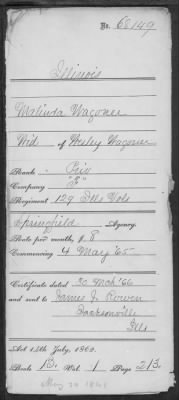 No. 68149
Illinois
Malinda Wagoner
Wid of Wesley Wagoner
Rank - Priv
Company "F"
Regiment 129 Ills Vols
Springfield Agency.
Rate per month, $ 8
Commencing 4 May '65
Certificate dated 30 Mch '66
and sent to James J. Rowen
Jacksonville
Ills
Act 14th July, 1862.
Book B. Vol. 1 Page 213
May 20 1865